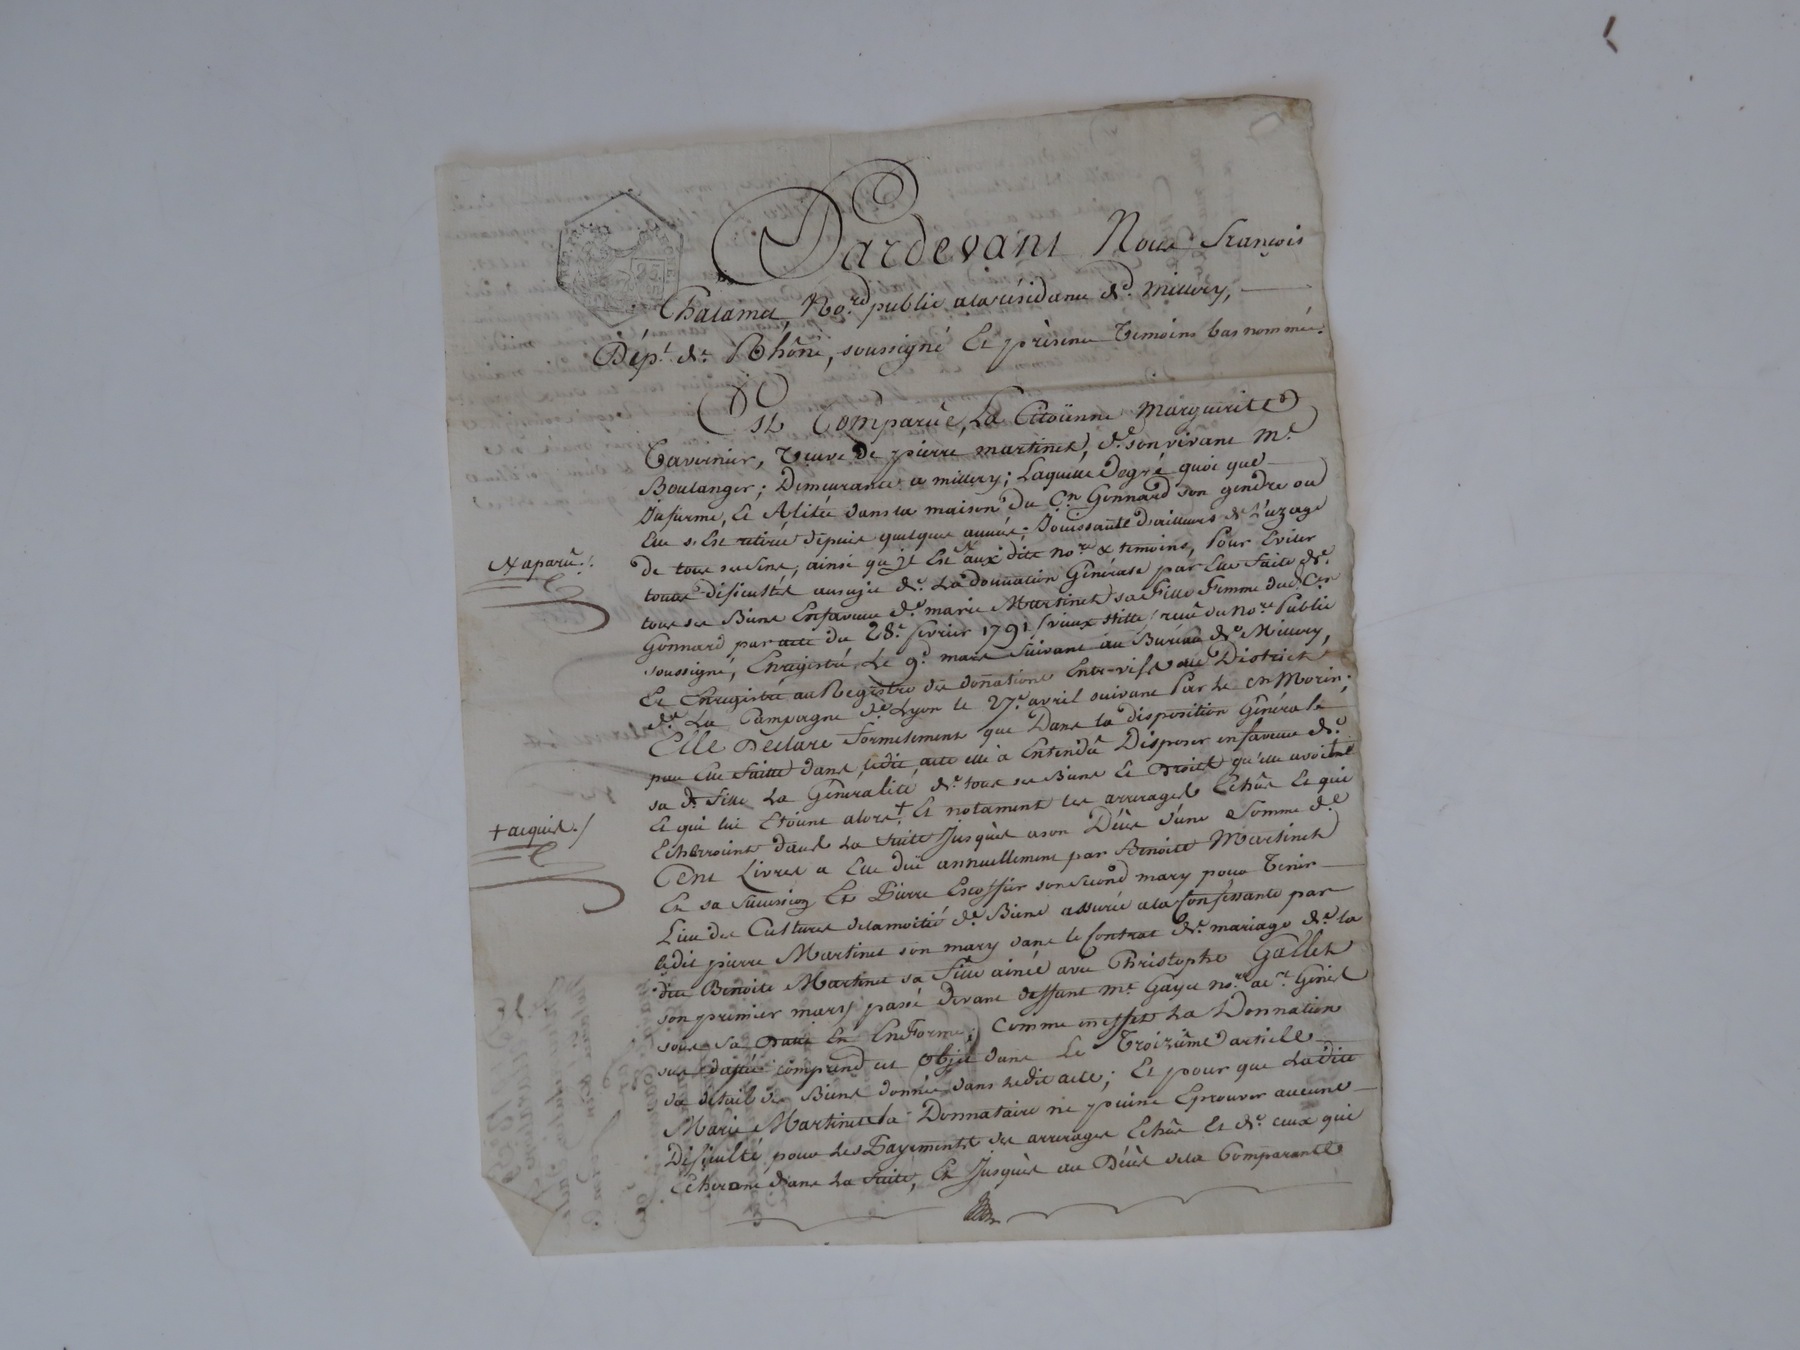 Pardevant Nous françois
Chalamel, No.rd public ala résidance de. millery,
Dépt. de. Rhône, soussigné Et présence Temoins bas nommés.
Est Comparüe, La Citoÿenne Marguerite
Tavernier, veuve De pierre martinet, de. son vivant Me.
Boulanger; Demeurante a millery; Laquelle Dogré quoi que
Infirme, et Alitée dans la maison Du Cn. Gonnard son gendre ou
Elle s'Est retirée depuis quelques années; Jouissante d'ailleurs de L'uzage
de tous ses sens, ainsi qu'jl Est X aux dits nore. & temoins, Pour Eviter
X aparu./.
toutes dificultés ausujet de. La donnation Générale par Elle faite de.
tous ses Biens Enfaveur de. marie Martinet sa fille femme dud. Cn.
Gonnard par acte du 28e. fevrier 1791 (vieux stille) reçu du Nore. Public
soussigné, Enregistré, Le 9e. mars suivant au Bureau de. Millery,
Et Enregistré au Registre des donnations Entre-vifs au District
de. La Campagne de. Lyon le 27e. avril suivant Par Le Cn Morin;
Elle Declare formelement que Dans la disposition Générale
par Elle faitte dans, ledit, acte elle à Entendu Disposer enfaveur de.
sa de. fille La Géneralité de. tous ses Biens Et Droits qu'elle avoit
Et qui lui Etoient alors + Et notament les arrerages Echûs Et qui
+ acquis./
Echerroient dans La suite Jusques ason Décès d'une Somme de
Cent Livres a Elle due annuellement par Benoite Martinet
Et sa succession Et Pierre Escoffier son second mary pour Tenir
Lieu des Cultures delamoitié de. Biens assurée ala Confessante par
ledit pierre Martinet son mary dans le Contrat de. mariage de. la
dite Benoite Martinet sa fille ainée avec Christophe Gallet
son premier mary passé devant deffunt Me. Gayet nore.
sous sa Datte En Enforme; Comme en effet La Donnation
sus datée comprend cet objet dans Le Troizième article
du détail des Biens donnés dans ledit acte; Et pour que Ladite
Marie Martinet la Donnataire ne puisse Eprouver aucune
Dificulté pour Les Payements des arrerages Echûs Et de. ceux qui
Echeront dans La suite, Et Jusques au Décès dela Comparante